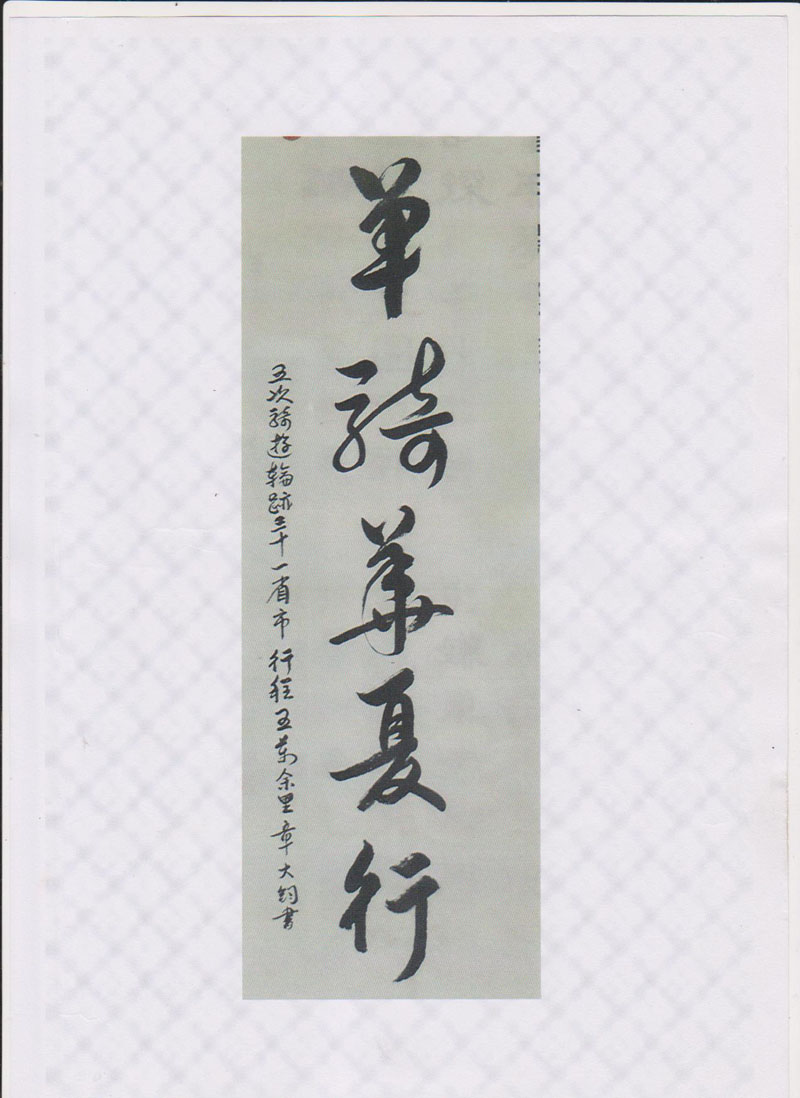 单骑華夏行
五次骑遊輪跡三十一省市 行程五萬余里 章大钧書